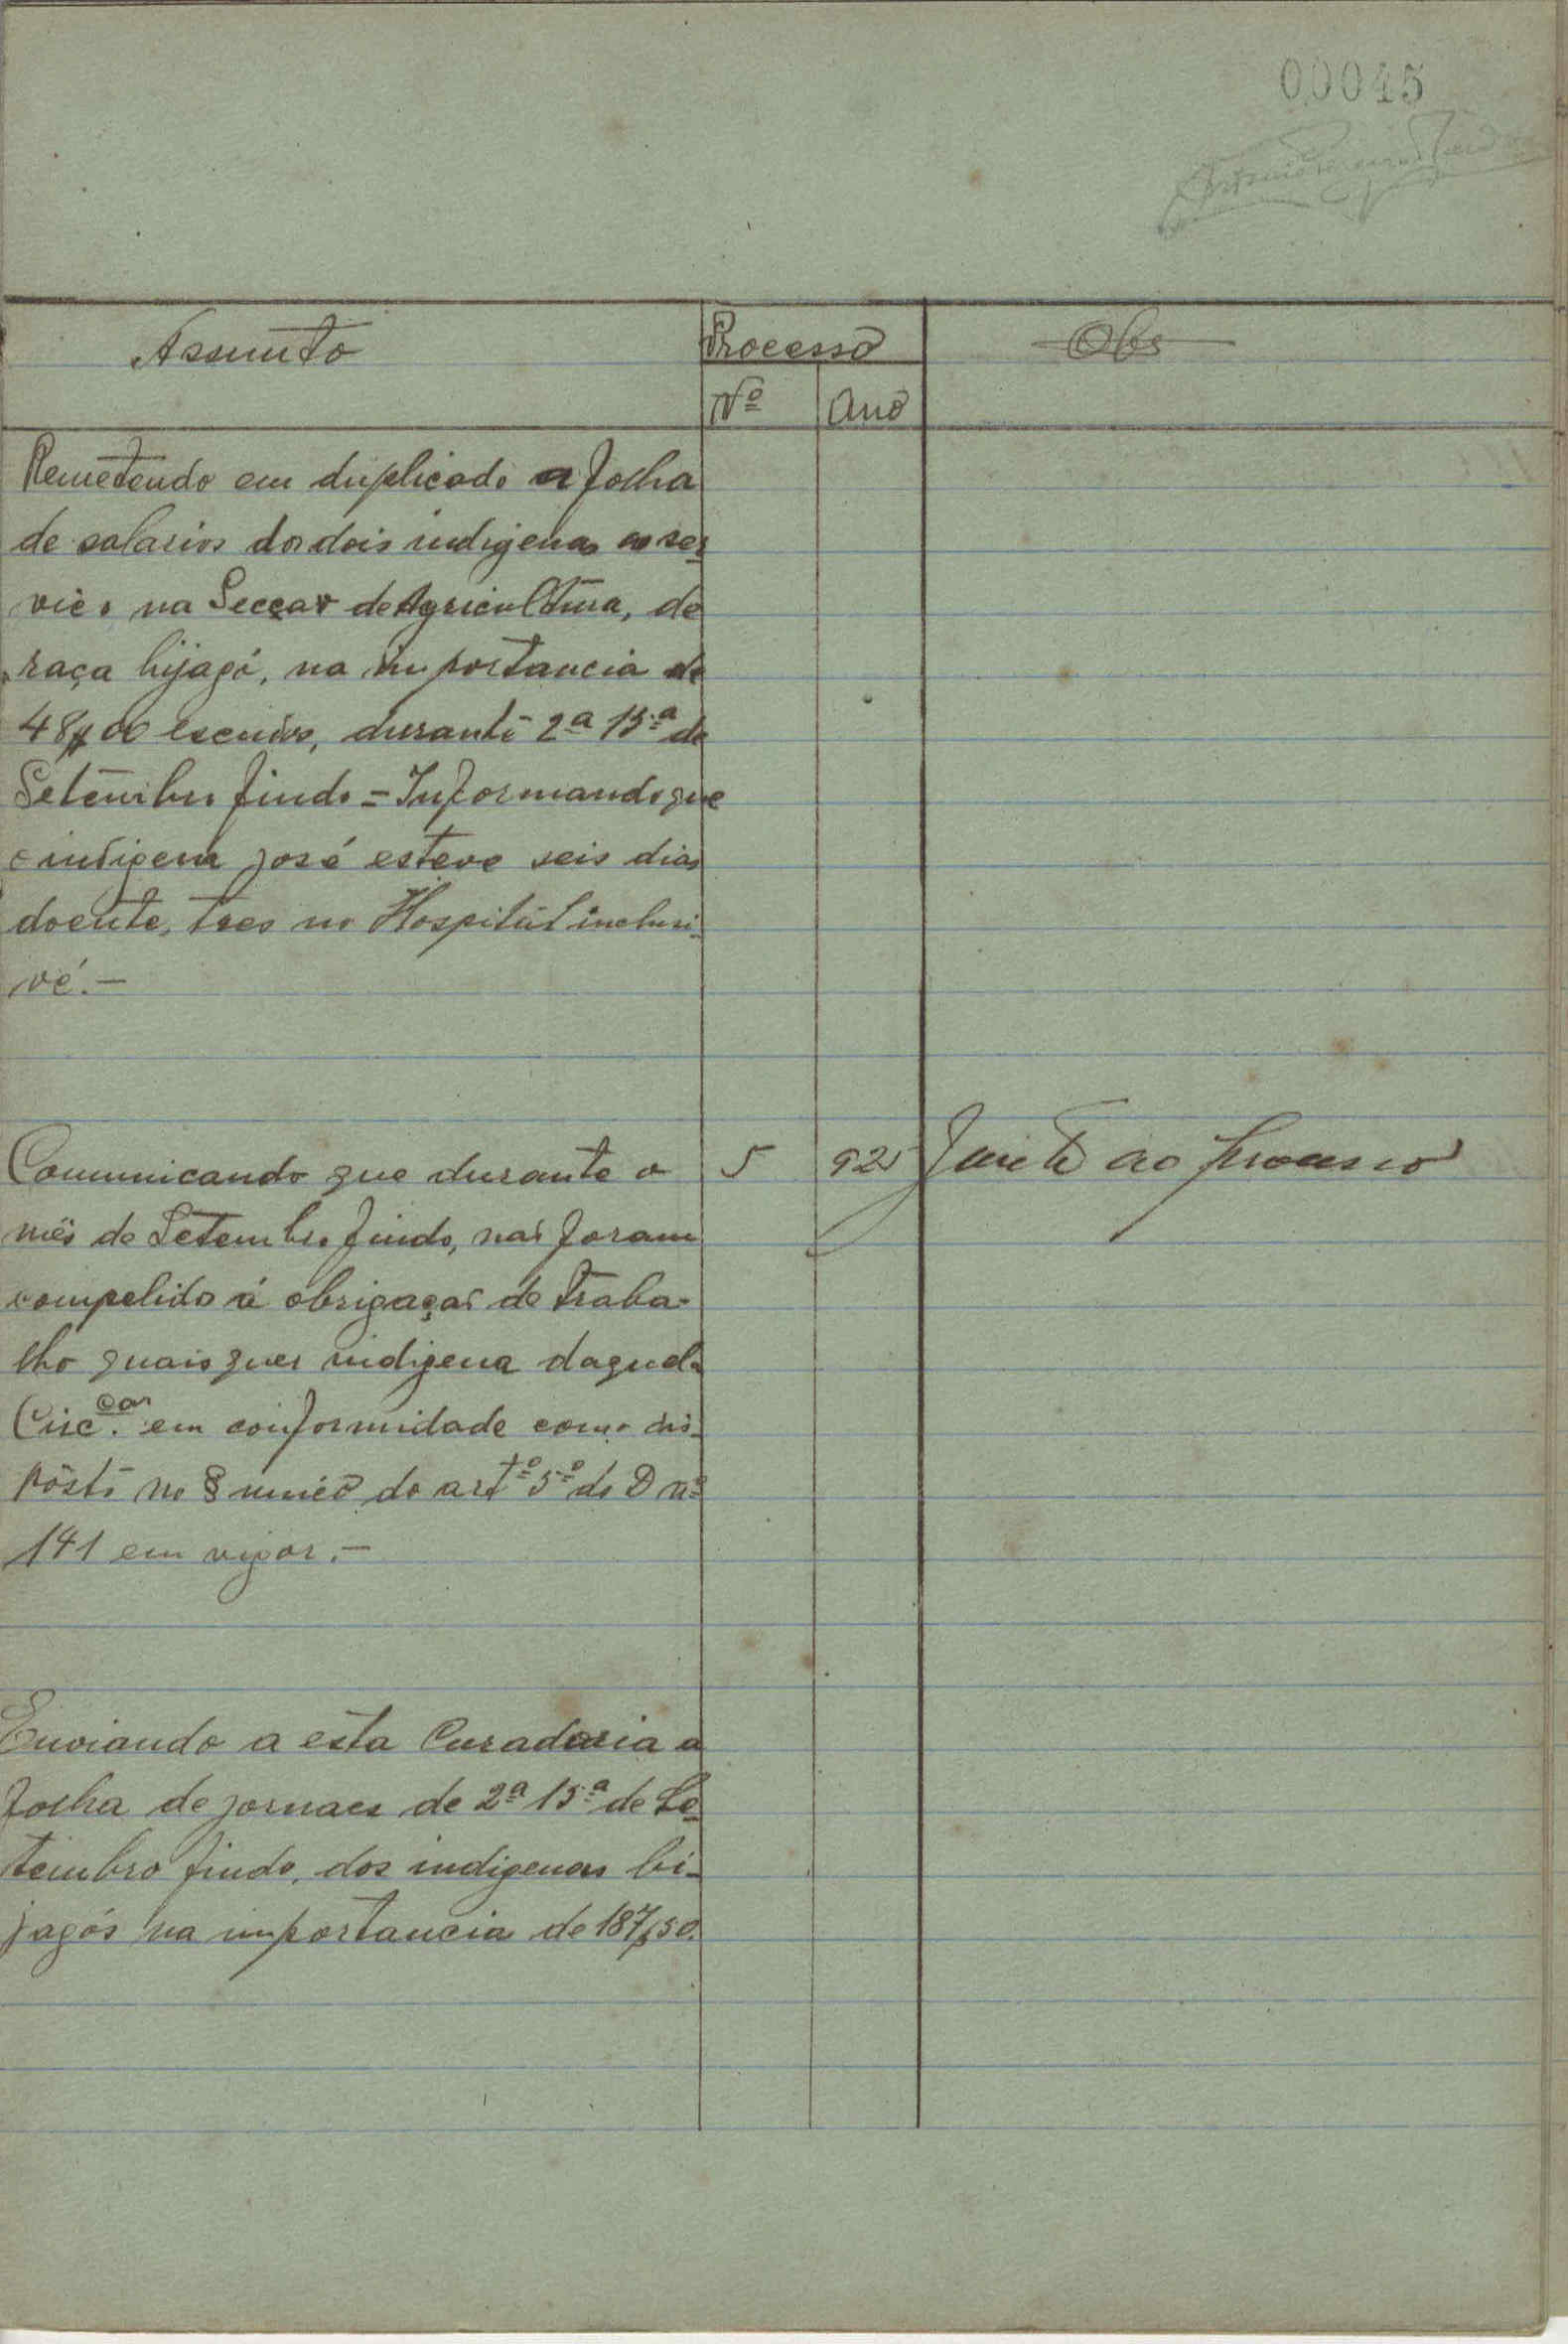 00045
Assunto Processo Obs
Nº Ano
Remetendo em duplicado a folha
de salarios dos dois indigenas ao ser-
viço na Secção de Agricultura, de
raça bijagó, na importancia de
48$00 escudos, durante 2ª 15.ª de
Setembro findo = Informando que
o indigena José esteve seis dias
doente, tres no Hospital inclusi-
vé.—
Comunicando que durante o 5 925 Junte ao processo
mês de Setembro findo, não foram
compelido á obrigação de traba-
lho quaisquer indigena daquela
Circ.ção em conformidade com o dis-
pôsto no § unico do artº 5º do D nº
141 em vigor.—
Enviando a esta Curadoria a
folha de jornaes de 2ª 15.ª de Se-
tembro findo, dos indigenas bi-
jagós na importancia de 187$50.